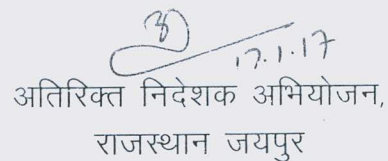 17.1.17
अतिरिक्त निदेशक अभियोजन,
राजस्थान जयपुर